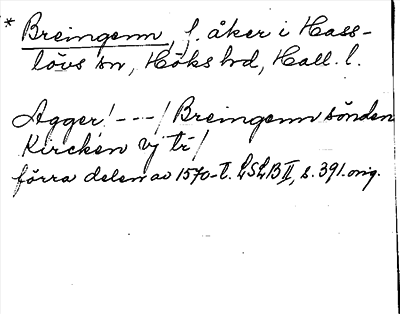 * Breingenn, f. åker i Hass-
lövs sn, Höks hd, Hall. l.
Agger! - - - / Breingenn sönden
Kircken vj tr /
förra delen av 1570-t. LSLB II, s. 391. orig.